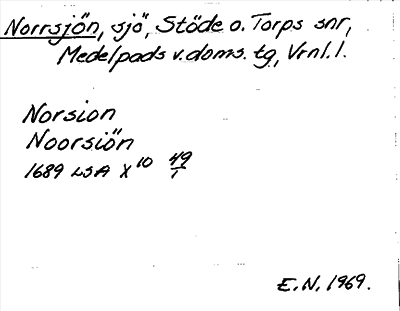 Norrsjön, sjö, Stöde o. Torps snr,
Medelpads v. doms. tg, Vrnl. l.
Norsion
Noorsiön
1689 LSA X¹⁰ 49/1
E.N. 1969.